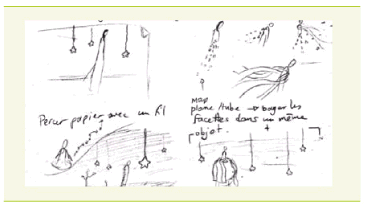 Percer papier avec un fil
map
plane/tube → bouger les
facettes dans un même
objet.